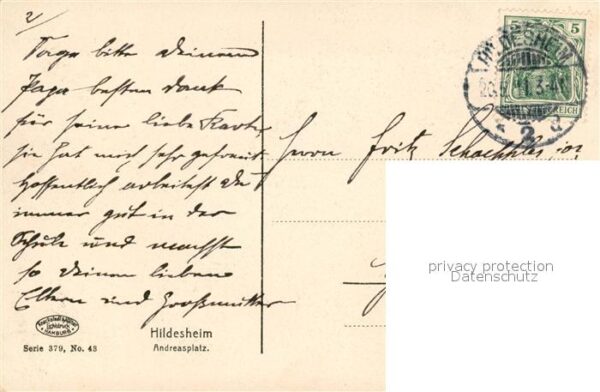 2/
Sage bitte Deinem
Papa besten Dank
für seine liebe Karte,
sie hat mich sehr gefreut
hoffentlich arbeitest Du
immer gut in der
Schule und machst
so Deinen lieben
Eltern und Großmutter
Herrn Fritz
5
HILDESHEIM
3-4
REICH
* 2 d
privacy protection
Datenschutz
HAMBURG
Hildesheim
Serie 379, No. 43 Andreasplatz.